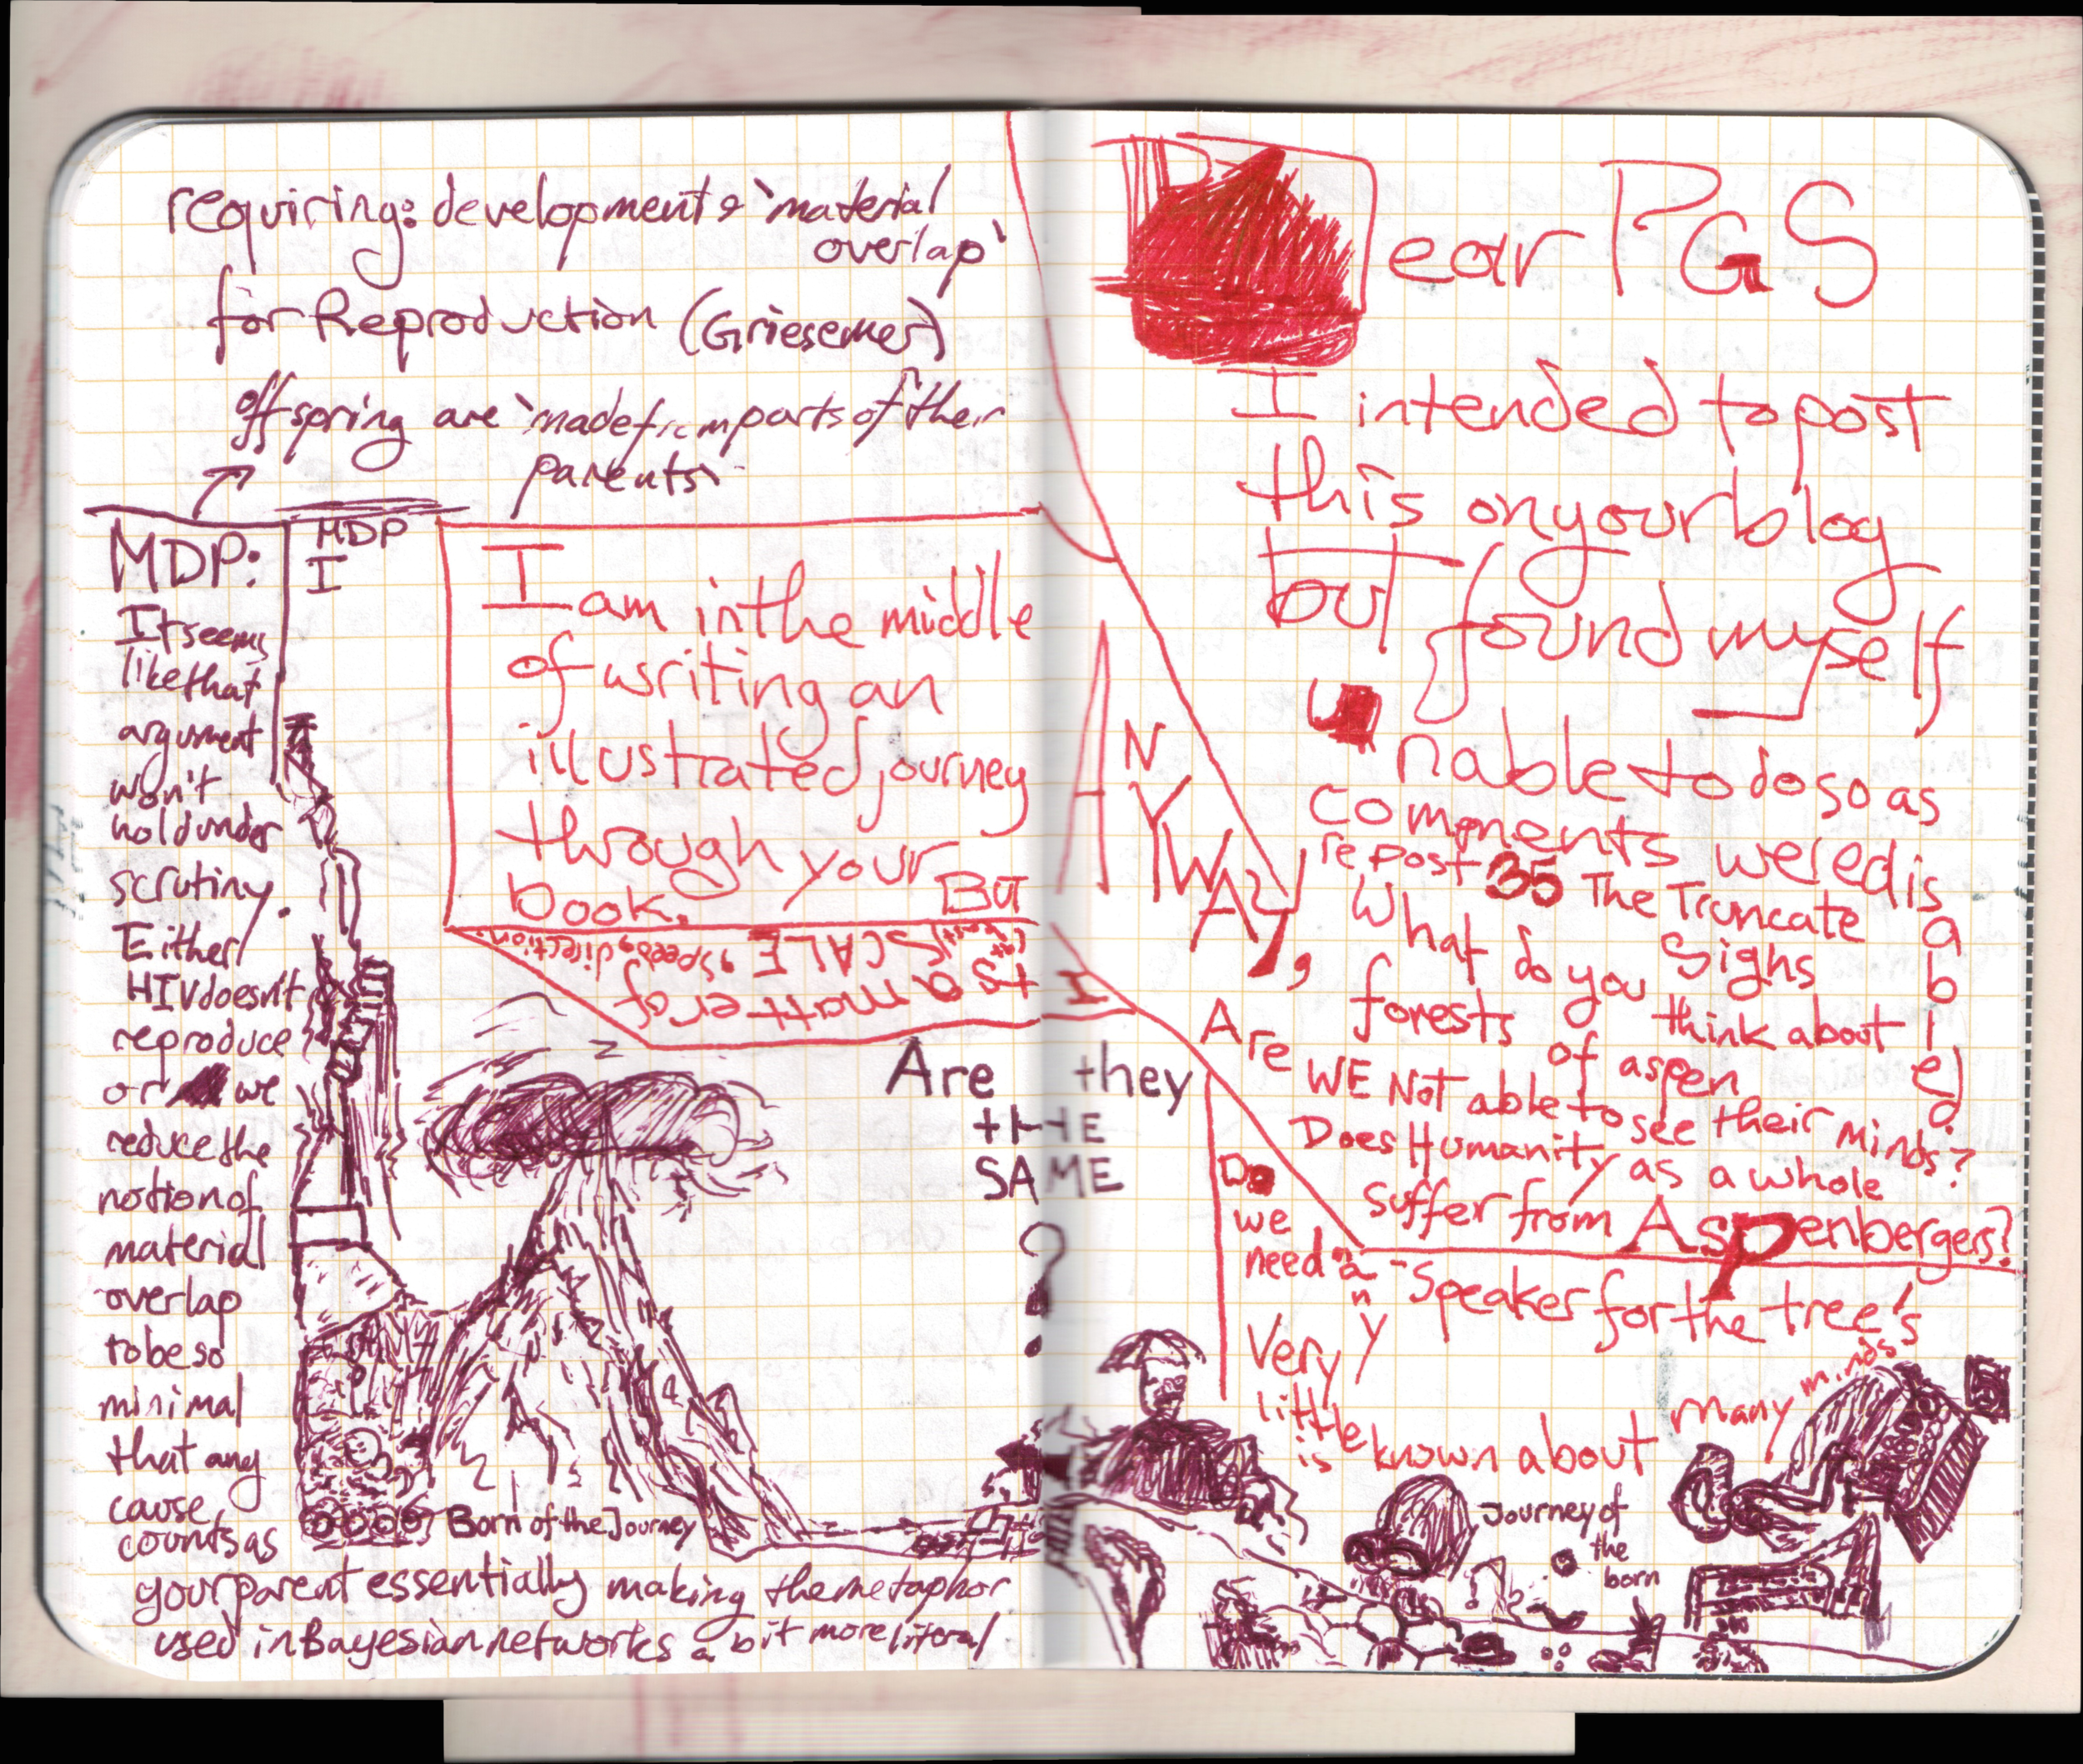 requiring: development & `material
overlap`
for Reproduction (Griesemer)
offspring are `made from parts of their
parents`
MDP:
It seems
like that
argument
won't
hold under
scrutiny.
Either
HIV doesn't
reproduce
or we
reduce the
notion of
material
overlap
to be so
minimal
that any
cause
counts as
your parent essentially making the metaphor
used in Bayesian networks a bit more literal
MDP
I
I am in the middle
of writing an
illustrated journey
through your
book. But
It's a matter of
SCALE, speed, direction.
Are they
THE
SAME
?
Born of the Journey
Dear PGS
I intended to post
this on your blog
but found myself
unable to do so as
comments were disabled.
ANYWAY,
repost 35 The Truncate
Sighs
What do you think about
forests of aspen
Are WE Not able to see their minds?
Does Humanity as a whole
suffer from Aspenbergers?
Do
we
need any
-Speaker for the tree's
Very
little
is known about many minds
Journey of
the
born